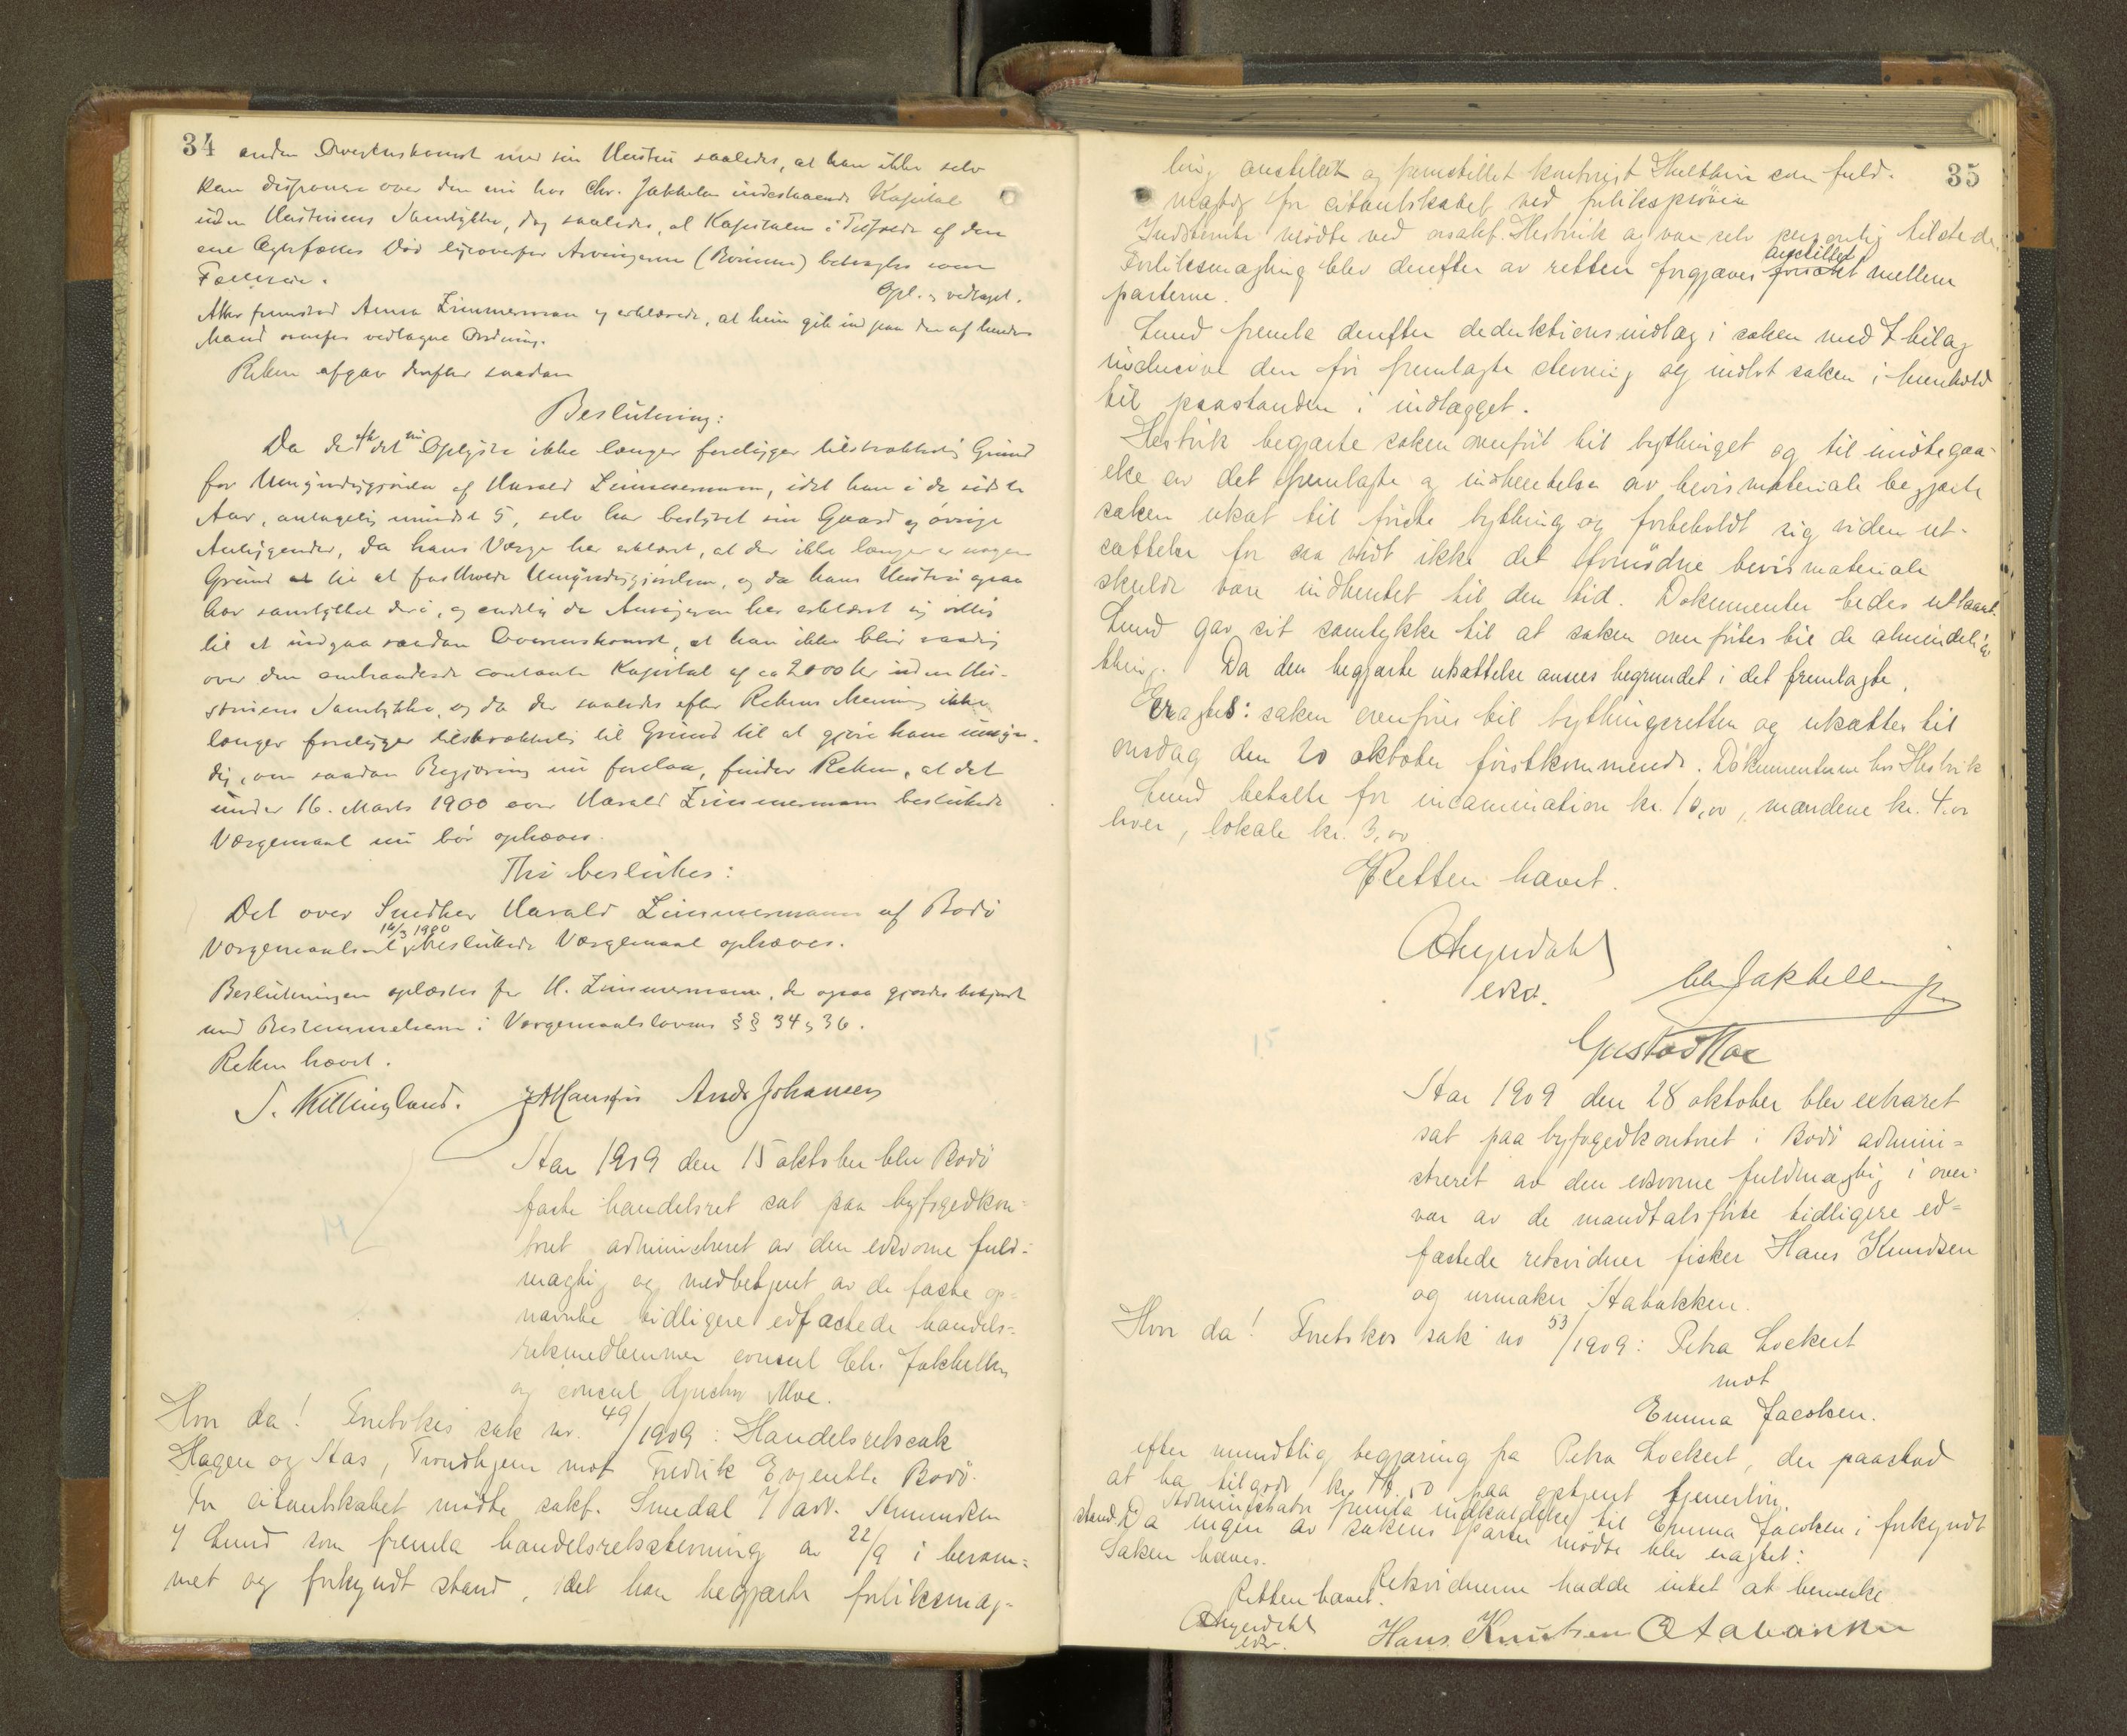 34
anden Overenskomst med sin Hustru saaledes, at han ikke selv
kan disponere over den nu hos Chr. Jakhelln indestaaende Kapital
uden Hustruens Samtykke, dog saaledes, at Kapitalen i Tilfælde af den
ene Ægtefælles Død ligeoverfor Arvingerne (Børnene) betragtes som
Fælleseie.
Opl. & vedtaget.
Atter fremstod Anna Zimmermann og erklærede, at hun gik ind paa den af hendes
Mand ovenfor vedtagne Ordning.
Retten afgav derefter saadan
Beslutning:
Da der efter det nu Oplyste ikke længer foreligger tilstrækkelig Grund
for Umyndiggjørelse af Harald Zimmermann, idet han i de sidste
Aar, antagelig mindst 5, selv har bestyret sin Gaard og øvrige
Anliggender, da hans Værge har erklæret, at der ikke længer er nogen
Grund til at fastholde Umyndiggjørelsen, og da hans Hustru ogsaa
har samtykket deri, og endelig da Ansøgeren har erklæret sig villig
til at indgaa saadan Overenskomst, at han ikke blir raadig
over den omhandlede contante Kapital af ca 2000 kr uden Hu-
struens Samtykke, og da der saaledes efter Rettens Mening ikke
længer foreligger tilstrækkelig til Grund til at gjøre ham umyn-
dig, om saadan Begjæring nu forelaa, finder Retten, at det
under 16. Marts 1900 over Harald Zimmermann besluttede
Værgemaal nu bør ophæves.
Thi besluttes:
Det over Snedker Harald Zimmermann af Bodø
16/3 1900
besluttede Værgemaal ophæves.
Beslutningen oplæstes for H. Zimmermann, der ogsaa gjordes bekjendt
med Bestemmelserne i Værgemaalslovens §§ 34 & 36.
Retten hævet.
S. Killingland. Ands Johansen
Aar 1909 den 15 oktober blev Bodø
faste handelsret sat paa byfogedkon-
toret administreret av den edsvorne fuld-
mægtig og medbetjent av de faste op-
nævnte tidligere edfæstede handels-
retsmedlemmer consul Ch. Jakhelln
og consul Gustav Moe.
Hvor da! Foretokes sak nr. 49/1909: Handelsretssak
Hagen og Aas, Trondhjem mot Fredrik Evjenth Bodø.
For citantskabet mødte sakf. Smedal f/ adv. Amundsen
& Lund som fremla handelsretsstevning av 22/9 i beram-
met og forkyndt stand, idet han begjærte forliksmæg-
35
ling anstillet og fremstillet kontorist Hulthin som fuld-
mægtig for citantskabet ved forliksprøven
Indstevnte mødte ved orsakf. Hestvik og var selv personlig tilstede.
anstillet
Forliksmægling blev derefter av retten forgjæves forsøkt mellem
parterne.
Lund fremla derefter deduktionsindlæg i saken med 7 bilag
inclusive den før fremlagte stevning og indlot saken i henhold
til paastanden i indlægget.
Hestvik begjærte saken overført til bythinget og til imøtegaa-
else av det fremlagte og indhentelse av bevismateriale begjærte
saken utsat til første bything og forbeholdt sig videre ut-
sættelse for saa vidt ikke det fornødne bevismateriale
skulde være indhentet til den tid. Dokumenter bedes utlaant.
Lund gav sit samtykke til at saken overføres til de almindelige
thing. Da den begjærte utsættelse ansees begrundet i det fremlagte,
Eragtes: saken overføres til bythingsretten og utsættes til
onsdag den 20 oktober førstkommende. Dokumenterne hos Hestvik
Lund betalte for incamination kr. 10,00, mændene kr. 4.00
hver, lokale kr. 3,00
Retten hævet.
edsv.
Ch Jakhelln jr
Gustav Moe
Aar 1909 den 28 oktober blev extraret
sat paa byfogedkontoret i Bodø admini-
streret av den edsvorne fuldmægtig i over-
vær av de mandtalsførte tidligere ed-
fæstede retsvidner fisker Hans Knudsen
og urmaker Stabakken.
Hvor da! Foretokes sak no 53/1909: Petra Lockert
mot
Emma Jacobsen.
efter mundtlig begjæring fra Petra Lockert, der paastod
at ha tilgode kr. 50 paa optjent tjenerløn.
Administrator fremla indkaldelse til Emma Jacobsen i forkyndt
stand. Da ingen av sakens parter mødte blev eragtet:
Saken hæves.
Retsvidnerne hadde intet at bemerke
Retten hævet.
edsv.
Hans Knutsen O Stabakken